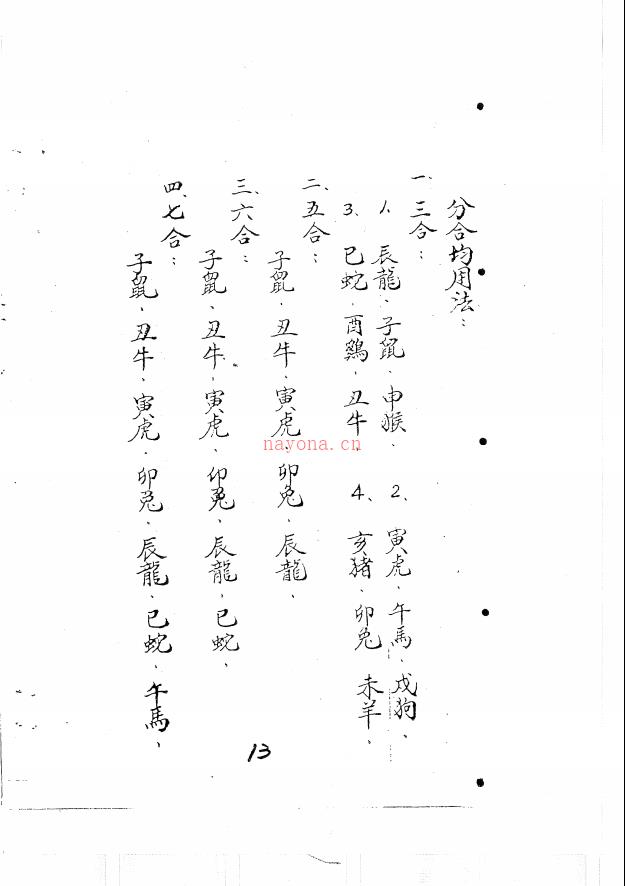 分合均用法：
一、三合：
1、辰龍、子鼠、申猴、　2、寅虎、午馬、戍狗、
3、巳蛇、酉鷄、丑牛、　4、亥豬、卯兔　未羊、
二、五合：
子鼠、丑牛、寅虎、卯兔、辰龍、
三、六合：
子鼠、丑牛、寅虎、卯兔、辰龍、巳蛇、
四、七合：
子鼠、丑牛、寅虎、卯兔、辰龍、巳蛇、午馬、
13
nayona.cn